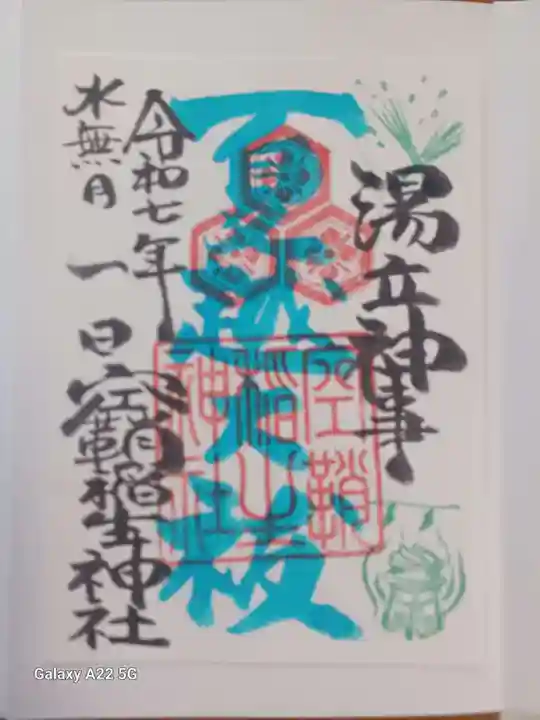 湯立神事
夏越大祓
空鞘
稲生
神社
令和七年
水無月
一日
空鞘稲生神社
Galaxy A22 5G